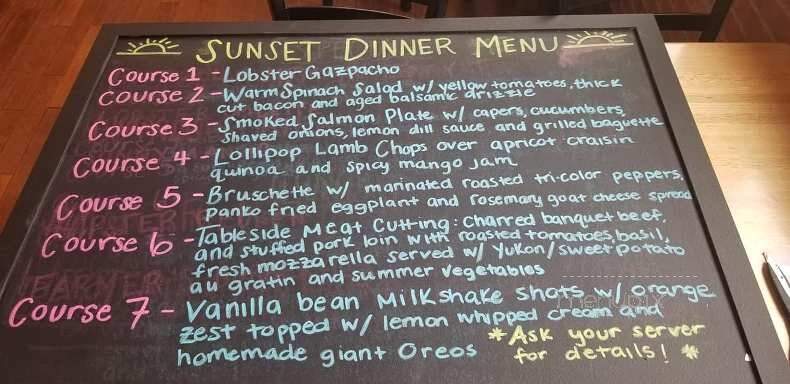 SUNSET DINNER MENU
Course 1 - Lobster Gazpacho
Course 2 - Warm Spinach Salad w/ yellow tomatoes, thick
cut bacon and aged balsamic drizzle
Course 3 - Smoked Salmon Plate w/ capers, cucumbers,
shaved onions, lemon dill sauce and grilled baguette
Course 4 - Lollipop Lamb Chops over apricot craisin
quinoa and spicy mango jam
Course 5 - Bruschette w/ marinated roasted tri-color peppers,
panko fried eggplant and rosemary goat cheese spread
Course 6 - Tableside Meat Cutting: charred banquet beef,
and stuffed pork loin with roasted tomatoes, basil,
fresh mozzarella served w/ Yukon/sweet potato
au gratin and summer vegetables
Course 7 - Vanilla bean Milkshake shots w/ orange
zest topped w/ lemon whipped cream and
homemade giant Oreos
*Ask your server
for details! *
menupix